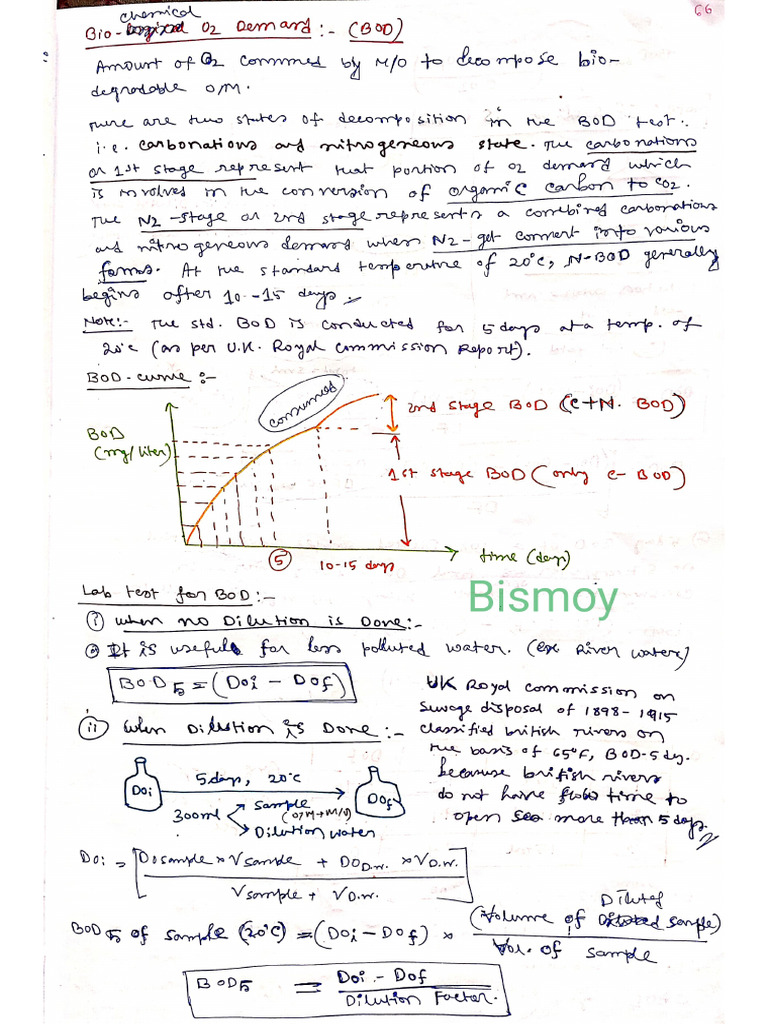 66
Bio-chemical O2 Demand :- (BOD)
Amount of O2 consumed by M/O to decompose bio-
degradable O/M.
There are two states of decomposition in the BOD test.
i.e. carbonations and nitrogeneous state. The carbonations
or 1st stage represent that portion of O2 demand which
is involves in the conversion of organic carbon to CO2.
The N2-stage or 2nd stage represents a combined carbonations
and nitrogeneous demand when N2-get convert into various
forms. At the standard temperature of 20°C, N-BOD generally
begins after 10-15 days
Note:- The std. BOD is conducted for 5 days at a temp. of
20°C (as per U.K. Royal Commission Report).
BOD-curve :-
consumed
BOD
(mg/liter)
2nd stage BOD (C+N. BOD)
1st stage BOD (only C-BOD)
5
10-15 days
time (days)
Bismoy
Lab test for BOD:-
(i) when no Dilution is Done:-
It is useful for less polluted water. (ex River water)
BOD5 = (DOi - DOf)
(ii) when Dilution is Done :-
UK Royal commission on
sewage disposal of 1898-1915
classified british rivers on
the basis of 65°F, BOD-5 dy.
because british rivers
do not have flow time to
open sea more than 5 days
DOi
5 days, 20°C
300ml
Sample
(O/M+M/O)
Dilution water
DOf
DOi = [DOsample × Vsample + DOD.w. × VD.w. / Vsample + VD.w.]
BOD5 of sample (20°C) = (DOi - DOf) × (Volume of Diluted sample) / Vol. of sample
BOD5 = DOi - DOf / Dilution Factor.